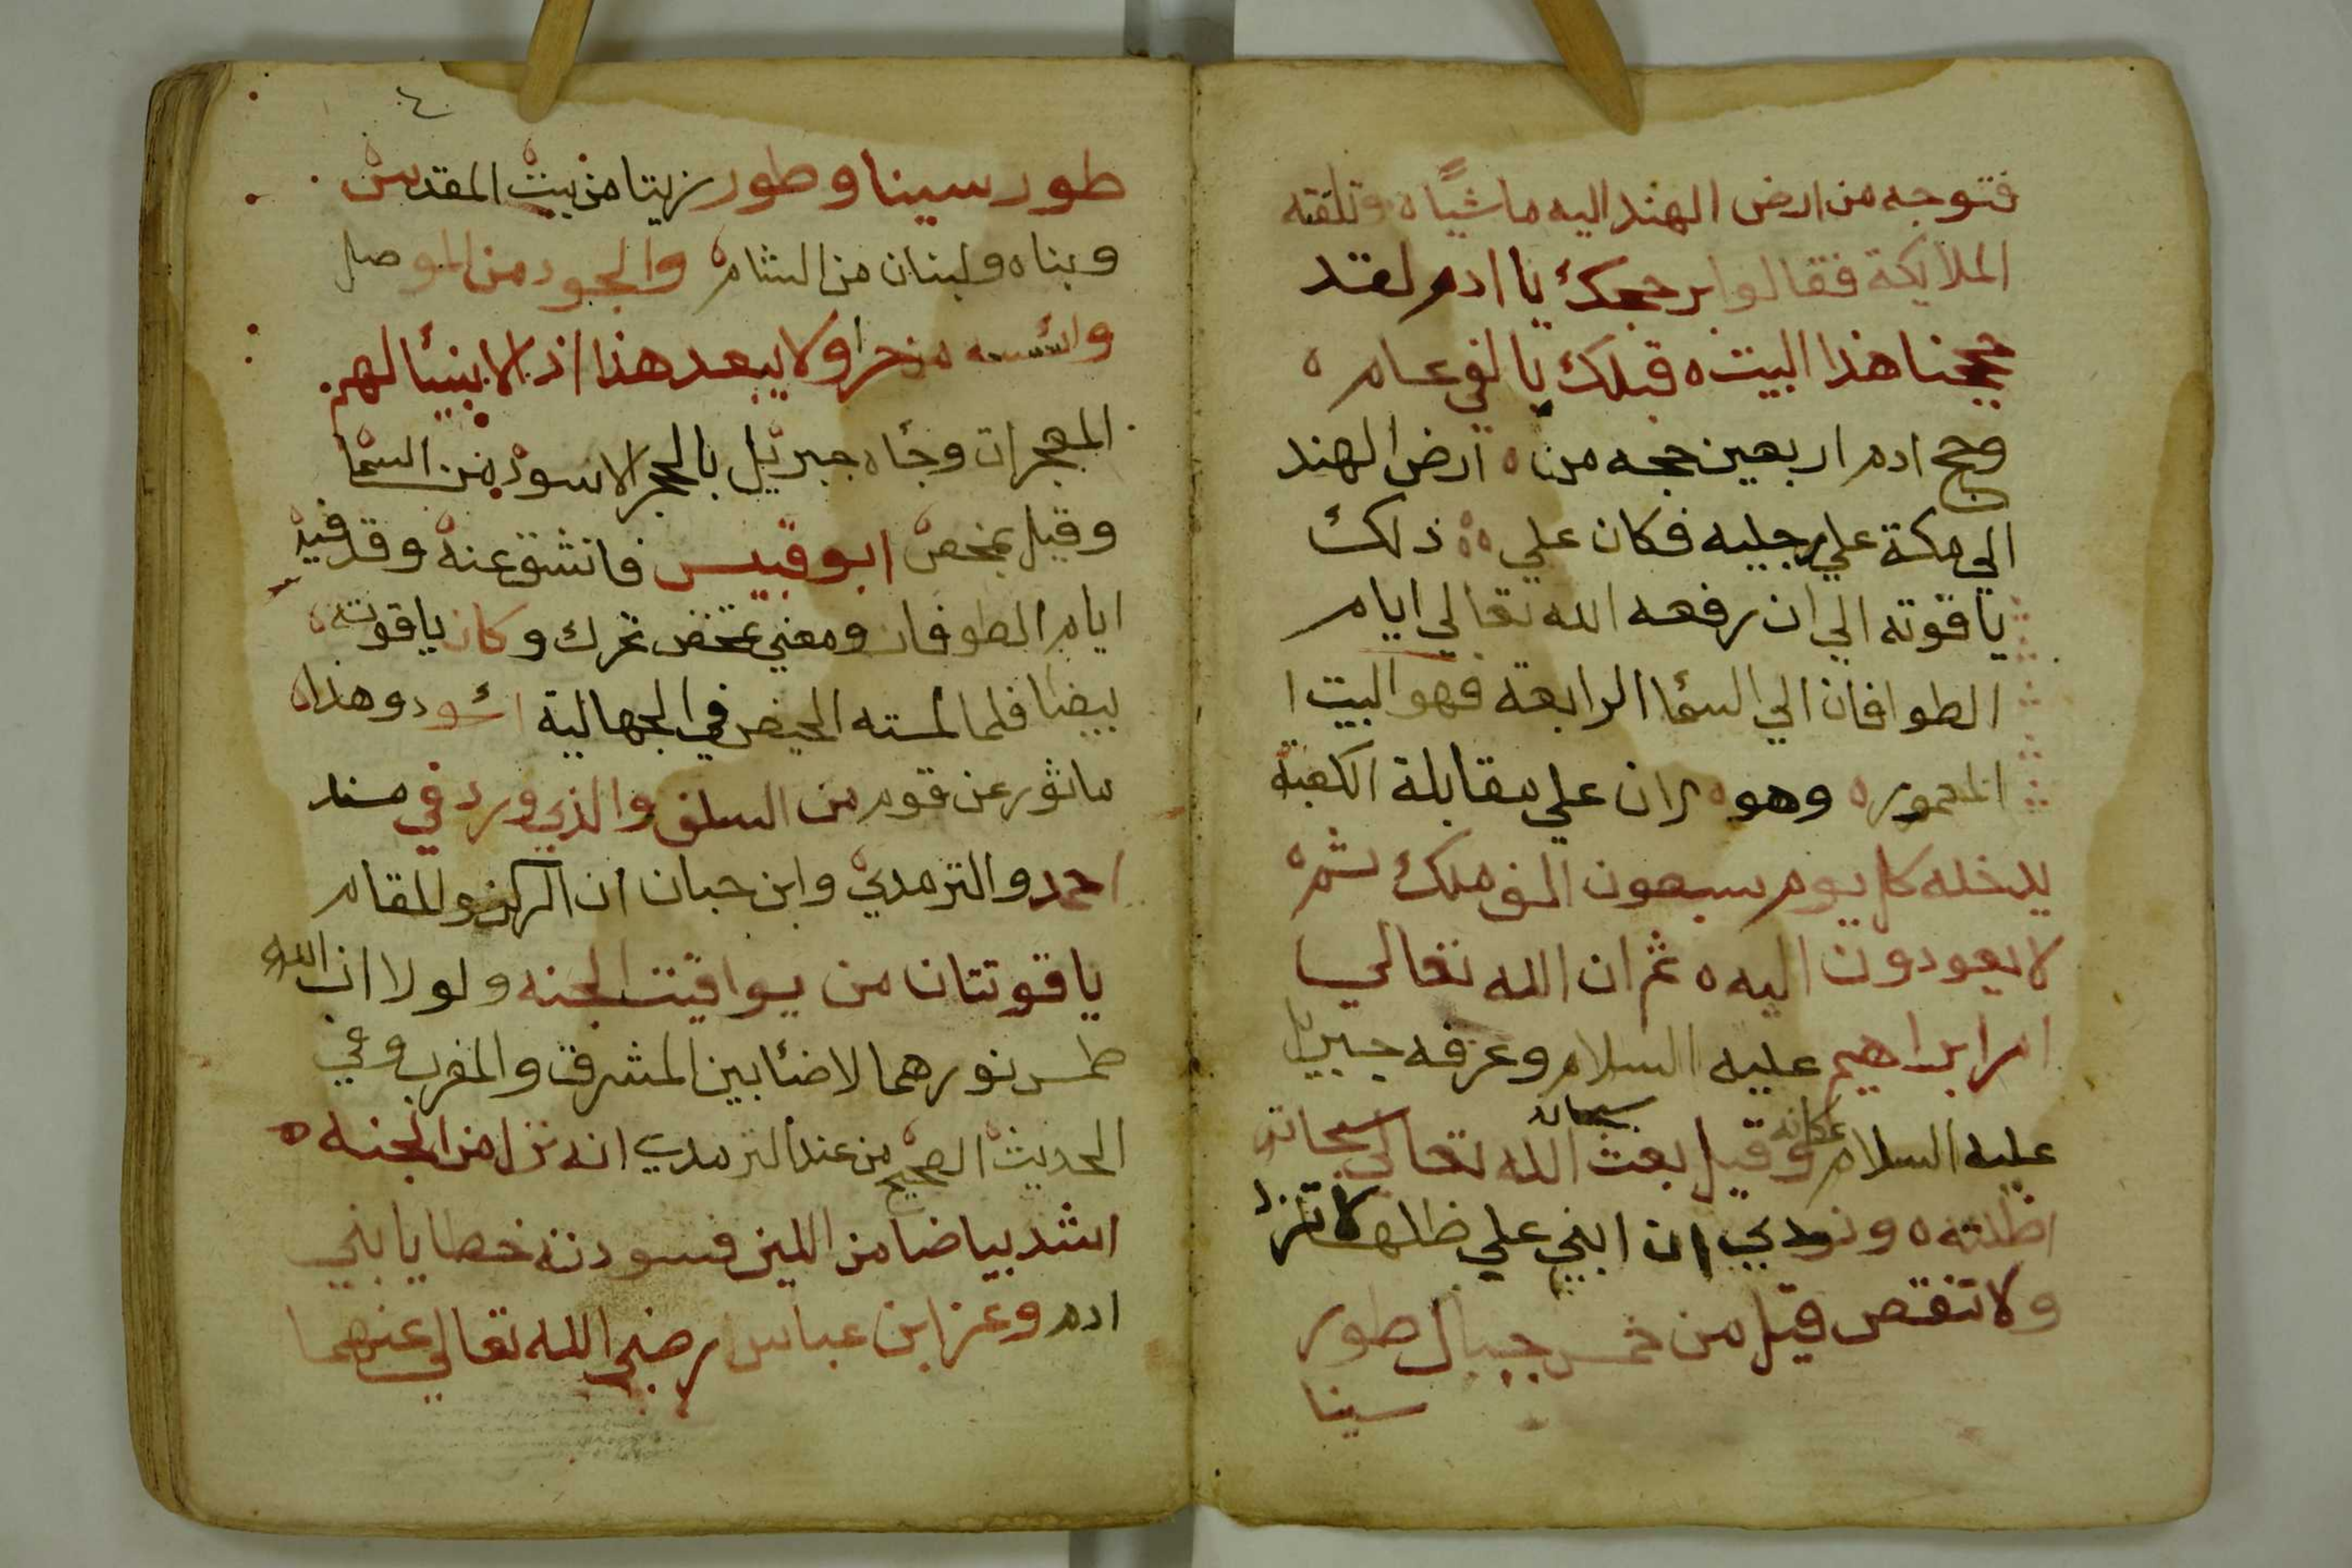 فتوجه من ارض الهند اليه ماشيًا ه وتلقته
الملايكة فقالوا برحجك يا ادم لقد
حججنا هذا البيت ه قبلك بالفي عام ه
وحج ادم اربعين حجه من ه ارض الهند
الي مكة علي رجليه فكان علي ه ه ذلك
ياقوته الي ان رفعه الله تعالي ايام
الطوافان الي السما الرابعة فهو البيت ا
المعموره ه وهو ه الان علي مقابلة الكعبة
يدخله كل يوم سبعون الف ملك ثم ه
لا يعودون اليه ه ثم ان الله تعالي
امر ابراهيم عليه السلام وعرفه جبريل
سبحانه
عليه السلام مكانه وقيل بعث الله تعالي سحابة
اظلته ه ونودي ان ابني علي ظلها لا تزد
ولا تنقص قيل من خمس جبال طور
سينا
٤
طور سينا وطور زيتا من بيت المقدس
وبناه ولبنان من الشام والجود من الموصل
واسسه من حرا ولا يبعد هذا اذ الانبيئا لهم
المعجزات وجاه جبريل بالحجر الاسود من السما
وقيل تمخض ابو قبيس فانشق عنه وقد فيه
ايام الطوفان ومعني تمخض تحرك وكان ياقوته
بيضا فلما لمسته الحيض في الجهالية اسود وهذا
ماثور عن قوم من السلف والذي ورد في مسند
احمد والترمدي وابن حبان ان الركن والمقام
ياقوتتان من يواقيت الجنه ولولا ان الله
طمس نورهما لاضئا بين المشرق والمغرب وفي
الحديث الصحيح من عند الترمدي انه نزل من الجنه ه
اشد بياضا من اللبن فسودته خطايا بني
ادم وعن ابن عباس رضي الله تعالي عنهما